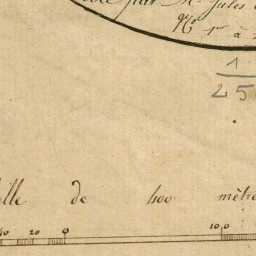 par Mr. Jules
1er à
1
25
lle de 400 mètre
40 20 0 100